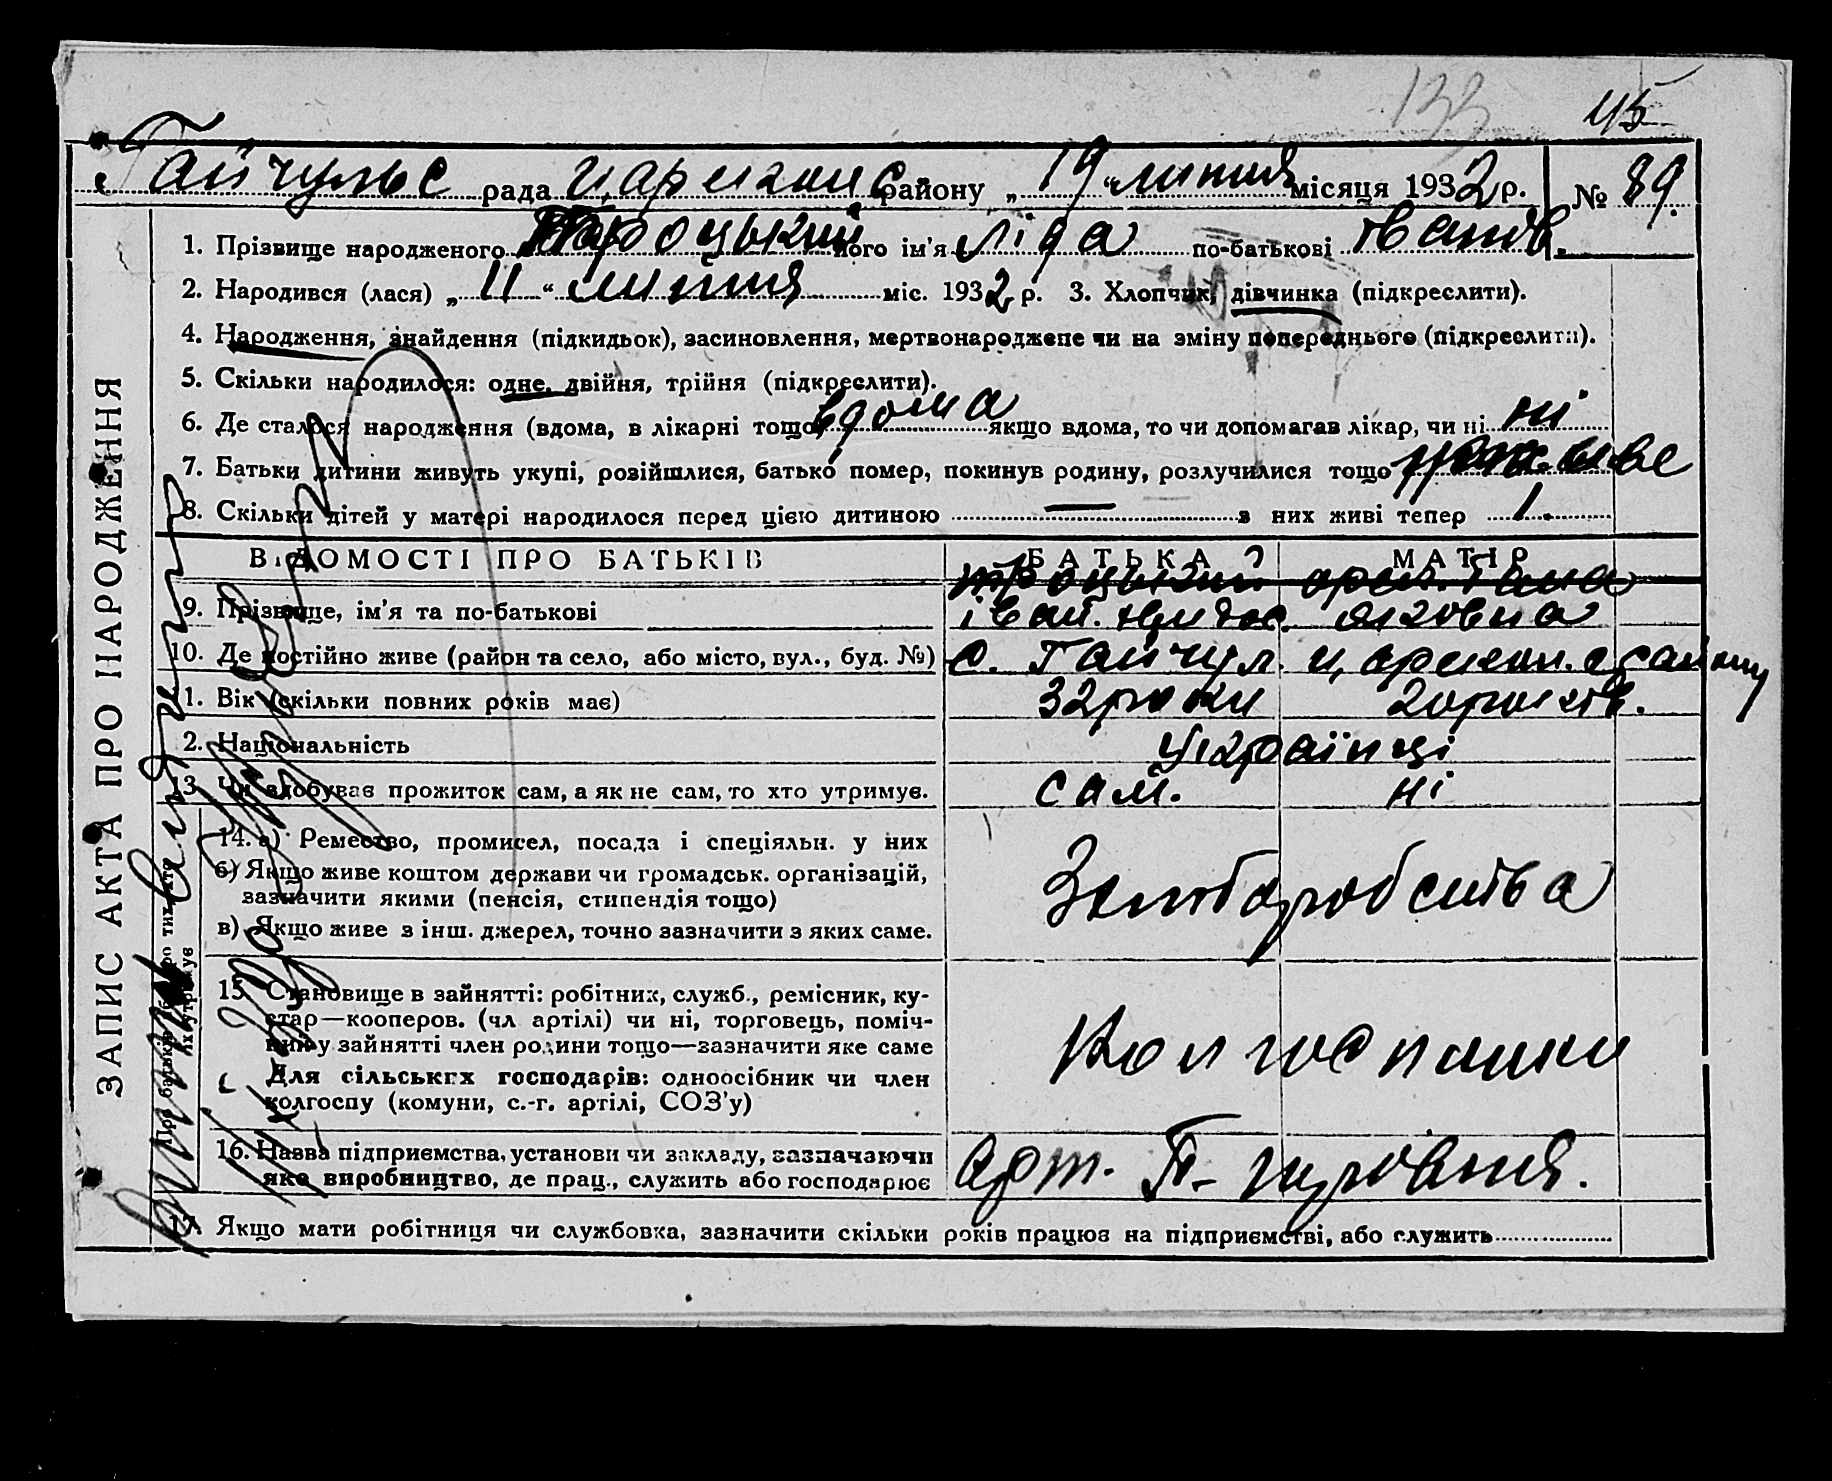 133 45
Гайчульс рада царекон с району „19“ липня місяця 1932 р. № 89.
1. Прізвище народженого Троцький його ім'я Ліда по-батькові Іванів.
2. Народився (лася) „11“ липня міс. 1932 р. 3. Хлопчик, дівчинка (підкреслити).
4. Народження, знайдення (підкидьок), засиновлення, мертвонароджене чи на зміну попереднього (підкреслити).
5. Скільки народилося: одне, двійня, трійня (підкреслити).
6. Де сталося народження (вдома, в лікарні тощо) вдома якщо вдома, то чи допомагав лікар, чи ні ні
7. Батьки дитини живуть укупі, розійшлися, батько помер, покинув родину, розлучилися тощо
8. Скільки дітей у матері народилося перед цією дитиною — з них живі тепер 1.
ЗАПИС АКТА ПРО НАРОДЖЕННЯ
ВІДОМОСТІ ПРО БАТЬКІВ БАТЬКА МАТІР
Троцький
9. Прізвище, ім'я та по-батькові Іван. Яковна
10. Де постійно живе (район та село, або місто, вул., буд. №) с. Гайчул. району
11. Вік (скільки повних років має) 32 роки 20
12. Національність Українці
13. Чи здобуває прожиток сам, а як не сам, то хто утримує. сам. ні
Про батьків або про тих, хто їх утримує
14. а) Ремество, промисел, посада і спеціяльн. у них
б) Якщо живе коштом держави чи громадськ. організацій,
зазначити якими (пенсія, стипендія тощо)
в) Якщо живе з інш. джерел, точно зазначити з яких саме.
Хліборобства
15. Становище в зайнятті: робітник, служб., ремісник, ку-
стар—кооперов. (чл артілі) чи ні, торговець, поміч-
ник у зайнятті член родини тощо—зазначити яке саме
Для сільськгх господарів: одноосібник чи член
колгоспу (комуни, с.-г. артілі, СОЗ'у)
Колгоспники
16. Назва підприємства, установи чи закладу, зазначаючи
яке виробництво, де прац., служить або господарює
арт.
17. Якщо мати робітниця чи службовка, зазначити скільки років працює на підприємстві, або служить